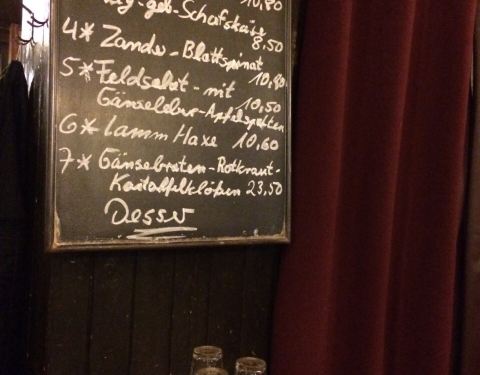 10,80
geb. Schafskäse
8,50
4* Zander-Blattspinat
10,80
5* Feldsalat - mit
10,50
Gänseleber-Apfelspalten
6* Lamm Haxe 10,60
7* Gänsebraten-Rotkraut-
Kartoffelklößen 23,50
Desser